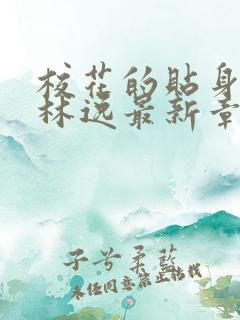 校花的贴身
林逸最新章
子兮柔蓝
未经同意禁止转载